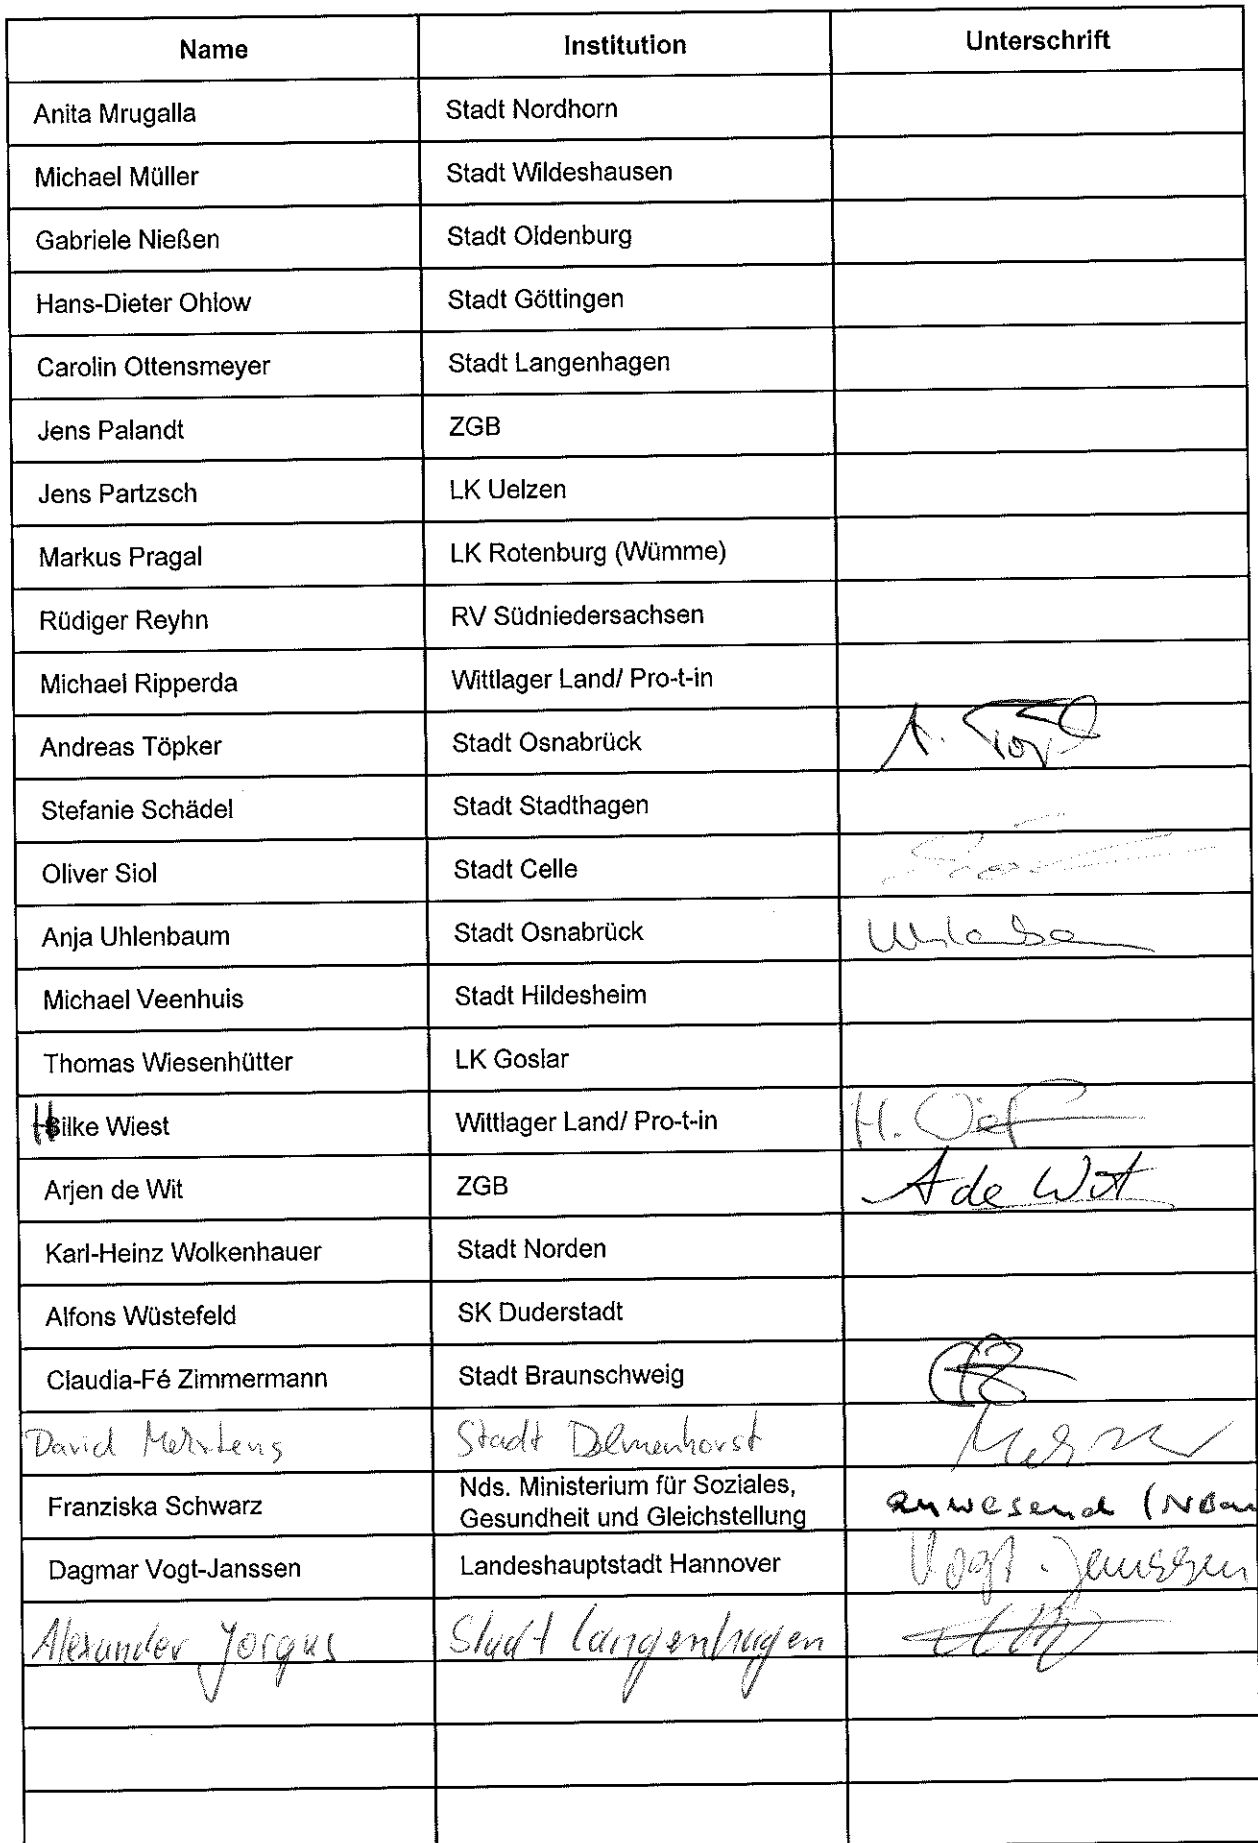 Name Institution Unterschrift
Anita Mrugalla Stadt Nordhorn
Michael Müller Stadt Wildeshausen
Gabriele Nießen Stadt Oldenburg
Hans-Dieter Ohlow Stadt Göttingen
Carolin Ottensmeyer Stadt Langenhagen
Jens Palandt ZGB
Jens Partzsch LK Uelzen
Markus Pragal LK Rotenburg (Wümme)
Rüdiger Reyhn RV Südniedersachsen
Michael Ripperda Wittlager Land/ Pro-t-in
Andreas Töpker Stadt Osnabrück A.
Stefanie Schädel Stadt Stadthagen
Oliver Siol Stadt Celle
Anja Uhlenbaum Stadt Osnabrück
Michael Veenhuis Stadt Hildesheim
Thomas Wiesenhütter LK Goslar
Hilke Wiest Wittlager Land/ Pro-t-in H.
Arjen de Wit ZGB A de Wit
Karl-Heinz Wolkenhauer Stadt Norden
Alfons Wüstefeld SK Duderstadt
Claudia-Fé Zimmermann Stadt Braunschweig
David Mehrtens Stadt Delmenhorst
Franziska Schwarz Nds. Ministerium für Soziales,
Gesundheit und Gleichstellung anwesend
Dagmar Vogt-Janssen Landeshauptstadt Hannover Vogt-Janssen
Alexander Jorgus Stadt Langenhagen